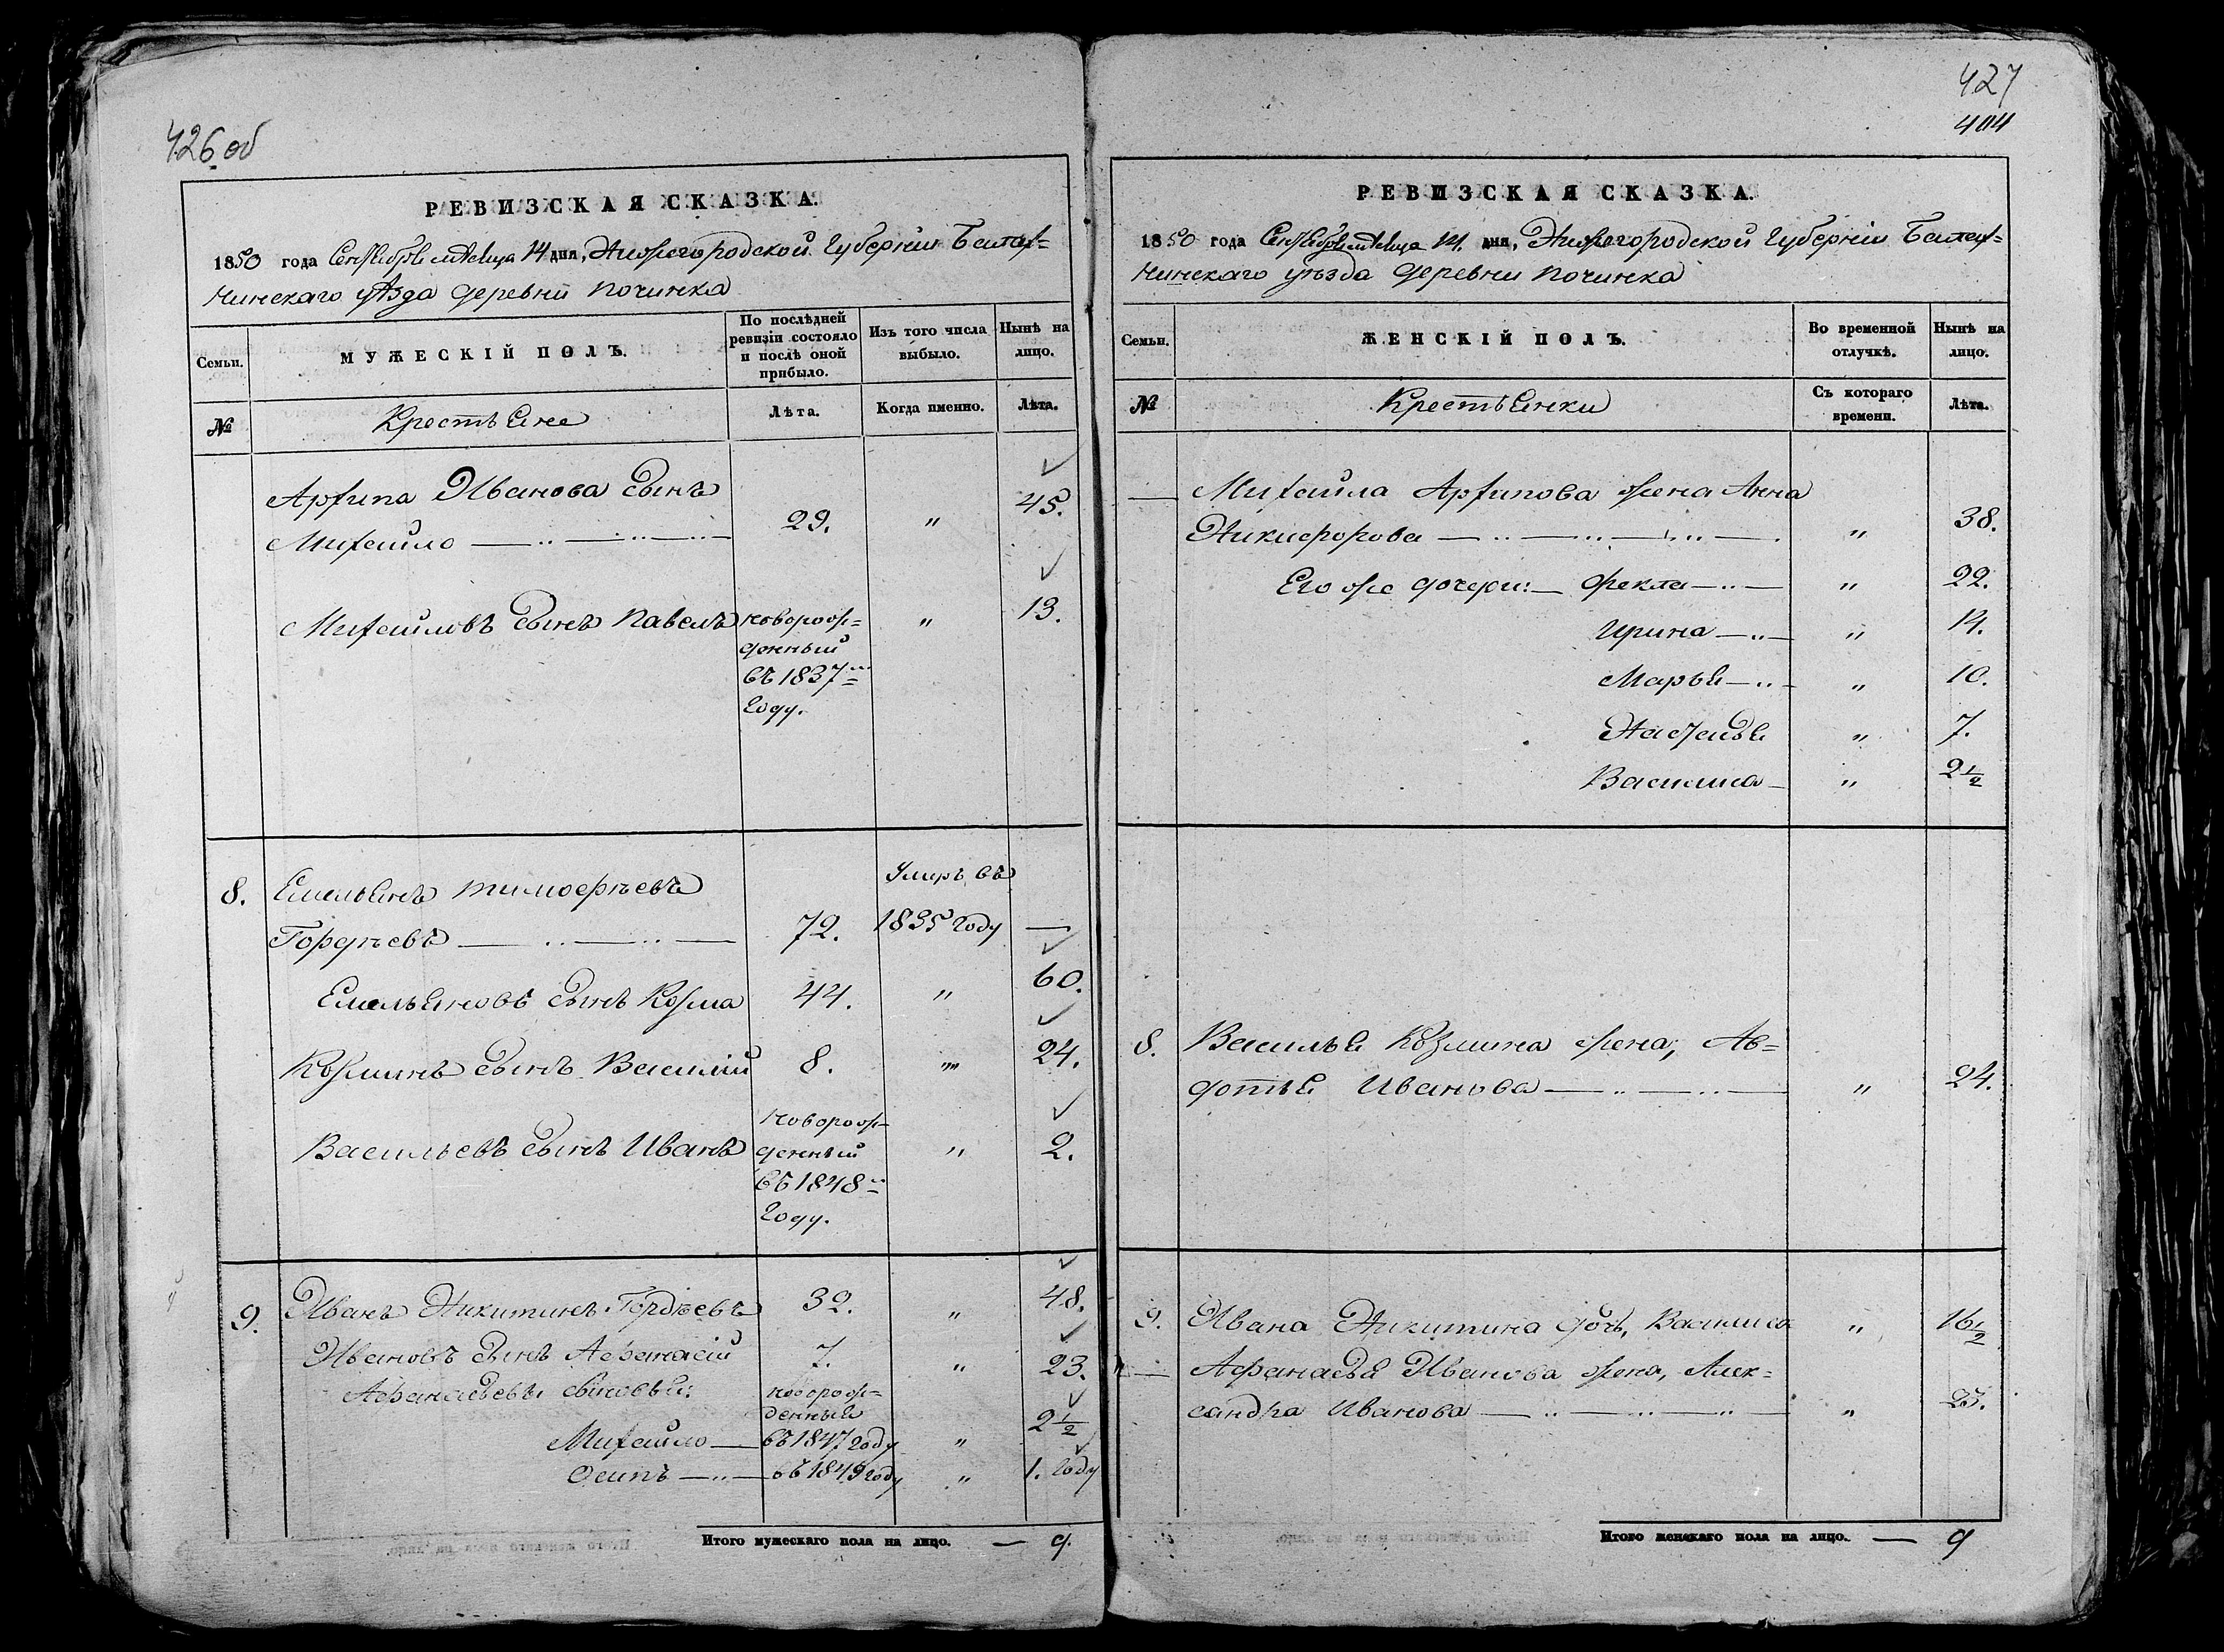 426 об
РЕВИЗСКАЯ СКАЗКА.
1850 года Сентября мѣсяца 14 дня, Нижегородской Губерніи Балах-
нинскаго уѣзда деревни Починка
Семьи.
МУЖЕСКІЙ ПОЛЪ.
По послѣдней
ревизіи состояло
и послѣ оной
прибыло.
Изъ того числа
выбыло.
Нынѣ на
лицо.
№
Крестьяне
Лѣта.
Когда именно.
Лѣта.
Архипа Иванова сынъ
Михайло 29. " 45.
Михайловъ сынъ Павелъ новорож- " 13.
денный
въ 1837
году.
8. Емельянъ Тимофѣевъ Умеръ въ
Гордѣевъ 72. 1835 году —
Емельяновъ сынъ Козма 44. " 60.
Козминъ сынъ Василій 8. " 24.
Васильевъ сынъ Иванъ новорож- " 2.
денный
въ 1848
году.
9. Иванъ Никитинъ Гордѣевъ 32. " 48.
Ивановъ сынъ Афанасій 7. " 23.
Афанасьевы сыновья: новорож-
денные
Михайло — въ 1847 году " 2½
Осипъ — въ 1849 году " 1. году
Итого мужескаго пола на лицо. — 9.
427
404
РЕВИЗСКАЯ СКАЗКА.
1850 года Сентября мѣсяца 14. дня, Нижегородской Губерніи Балах-
нинскаго уѣзда деревни Починка
Семьи.
ЖЕНСКІЙ ПОЛЪ.
Во временной
отлучкѣ.
Нынѣ на
лицо.
№
Крестьянки
Съ котораго
времени.
Лѣта.
— Михайла Архипова жена Анна
Никифорова " 38.
Его же дочери: — Фекла " 22.
Ирина " 14.
Марья " 10.
Настасья " 7.
Василиса " 2½
8. Василья Козмина жена, Ав-
дотья Иванова " 24.
9. Ивана Никитина дочь, Василиса " 16½
— Афанасья Иванова жена, Алек-
сандра Иванова " 23.
Итого женскаго пола на лицо. — 9